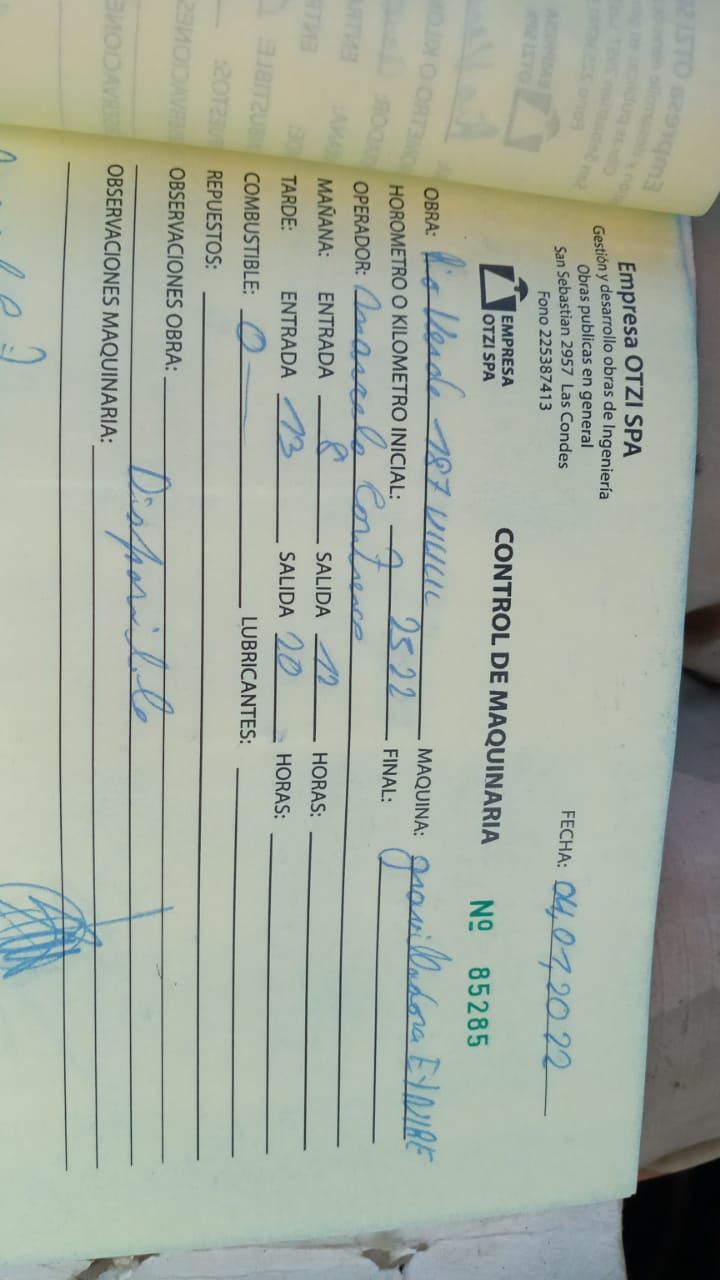 Empresa OTZI SPA
Gestión y desarrollo obras de Ingeniería
Obras publicas en general
San Sebastian 2957 Las Condes
Fono 225387413
EMPRESA
OTZI SPA
FECHA: 04,01,2022
CONTROL DE MAQUINARIA
Nº 85285
OBRA: Rio Verde 187 MAQUINA: gravilladora
HOROMETRO O KILOMETRO INICIAL: 2522 FINAL:
OPERADOR: Marcelo Contreras
MAÑANA: ENTRADA 8 SALIDA 12 HORAS:
TARDE: ENTRADA 13 SALIDA 20 HORAS:
COMBUSTIBLE: 0 LUBRICANTES:
REPUESTOS:
OBSERVACIONES OBRA:
Disponible
OBSERVACIONES MAQUINARIA: